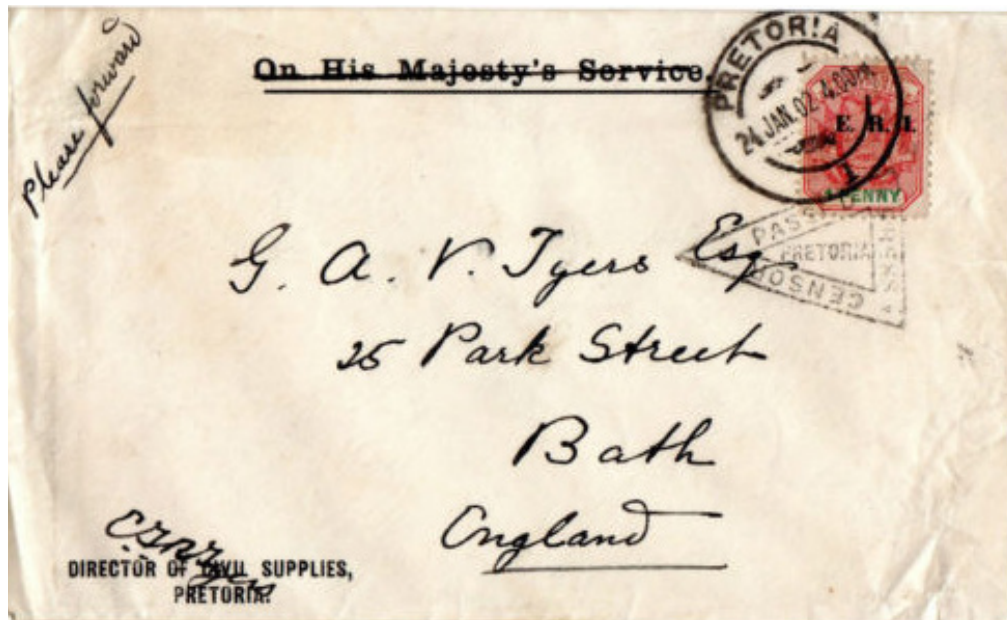 Please forward
On His Majesty's Service.
PRETORIA
24 JAN. 02 4.00
E. R. I.
1 PENNY
PASSED
PRETORIA
CENSOR
G. A. V. Tyers Esq
25 Park Street
Bath
England
DIRECTOR OF CIVIL SUPPLIES,
PRETORIA.